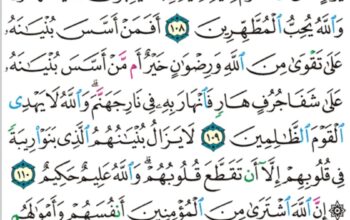 وَٱللَّهُ يُحِبُّ ٱلْمُطَّهِّرِينَ ١٠٨ أَفَمَنْ أَسَّسَ بُنْيَٰنَهُۥ
عَلَىٰ تَقْوَىٰ مِنَ ٱللَّهِ وَرِضْوَٰنٍ خَيْرٌ أَم مَّنْ أَسَّسَ بُنْيَٰنَهُۥ
عَلَىٰ شَفَا جُرُفٍ هَارٍ فَٱنْهَارَ بِهِۦ فِى نَارِ جَهَنَّمَ ۗ وَٱللَّهُ لَا يَهْدِى
ٱلْقَوْمَ ٱلظَّٰلِمِينَ ١٠٩ لَا يَزَالُ بُنْيَٰنُهُمُ ٱلَّذِى بَنَوْا۟ رِيبَةً
فِى قُلُوبِهِمْ إِلَّآ أَن تَقَطَّعَ قُلُوبُهُمْ ۗ وَٱللَّهُ عَلِيمٌ حَكِيمٌ ١١٠
۞ إِنَّ ٱللَّهَ ٱشْتَرَىٰ مِنَ ٱلْمُؤْمِنِينَ أَنفُسَهُمْ وَأَمْوَٰلَهُم